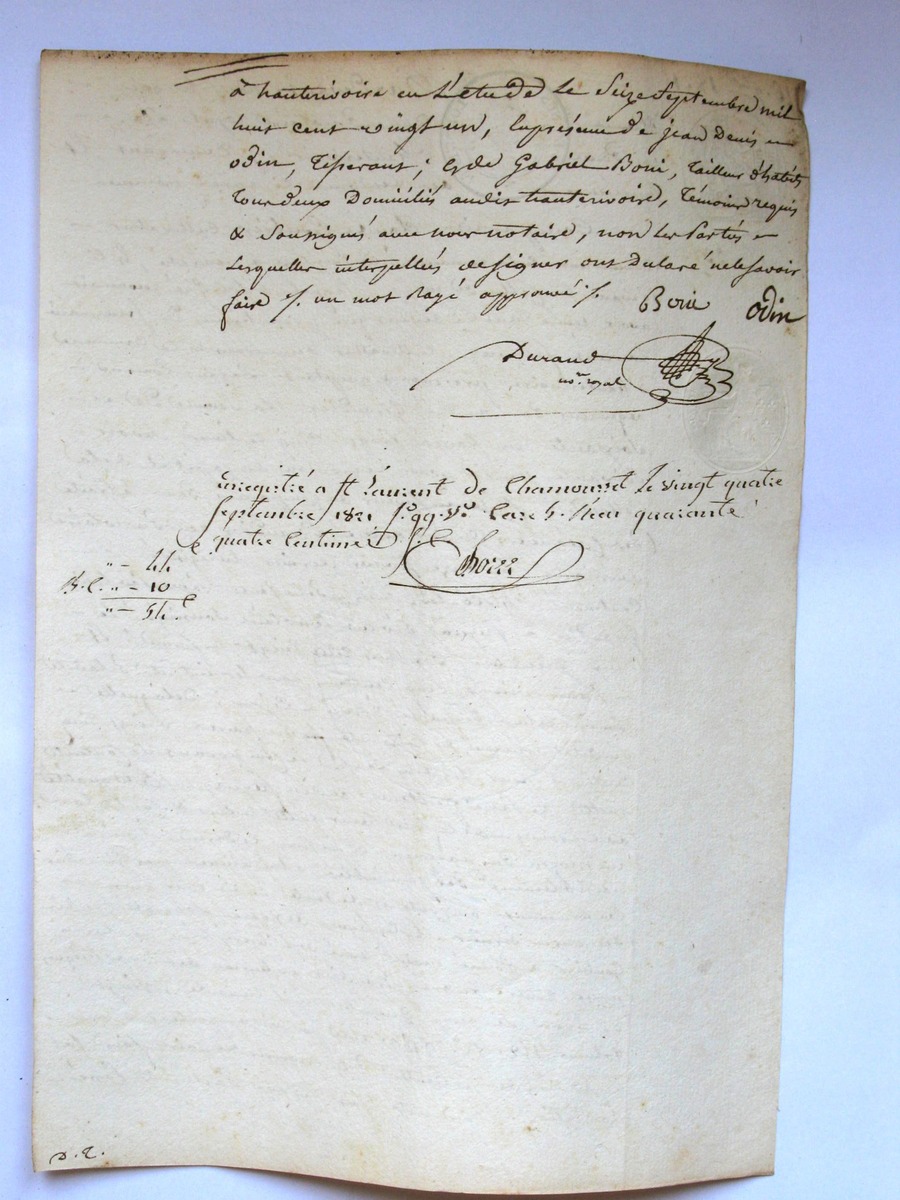 à hauterivoire en L'étude Le Seize Septembre mil
huit cent vingt un, En présence de jean Denis
odin, Tisserant; et de Gabriel Boni, Tailleur d'habits
Tous deux Domiciliés audit hauterivoire, Témoins requis
& Soussignés avec nous notaire, non Les Parties
Lesquelles interpellées de signer ont Déclaré ne le Savoir
faire /. un mot Rayé approuvé /.
odin
Durand
no.re royal
Enregistré a St Laurent de Chamousset Le vingt quatre
Septembre 1821 f.o 99 v.o Case 5. Reçu quarante
quatre Centimes
" — 44
" — 10
" — 54